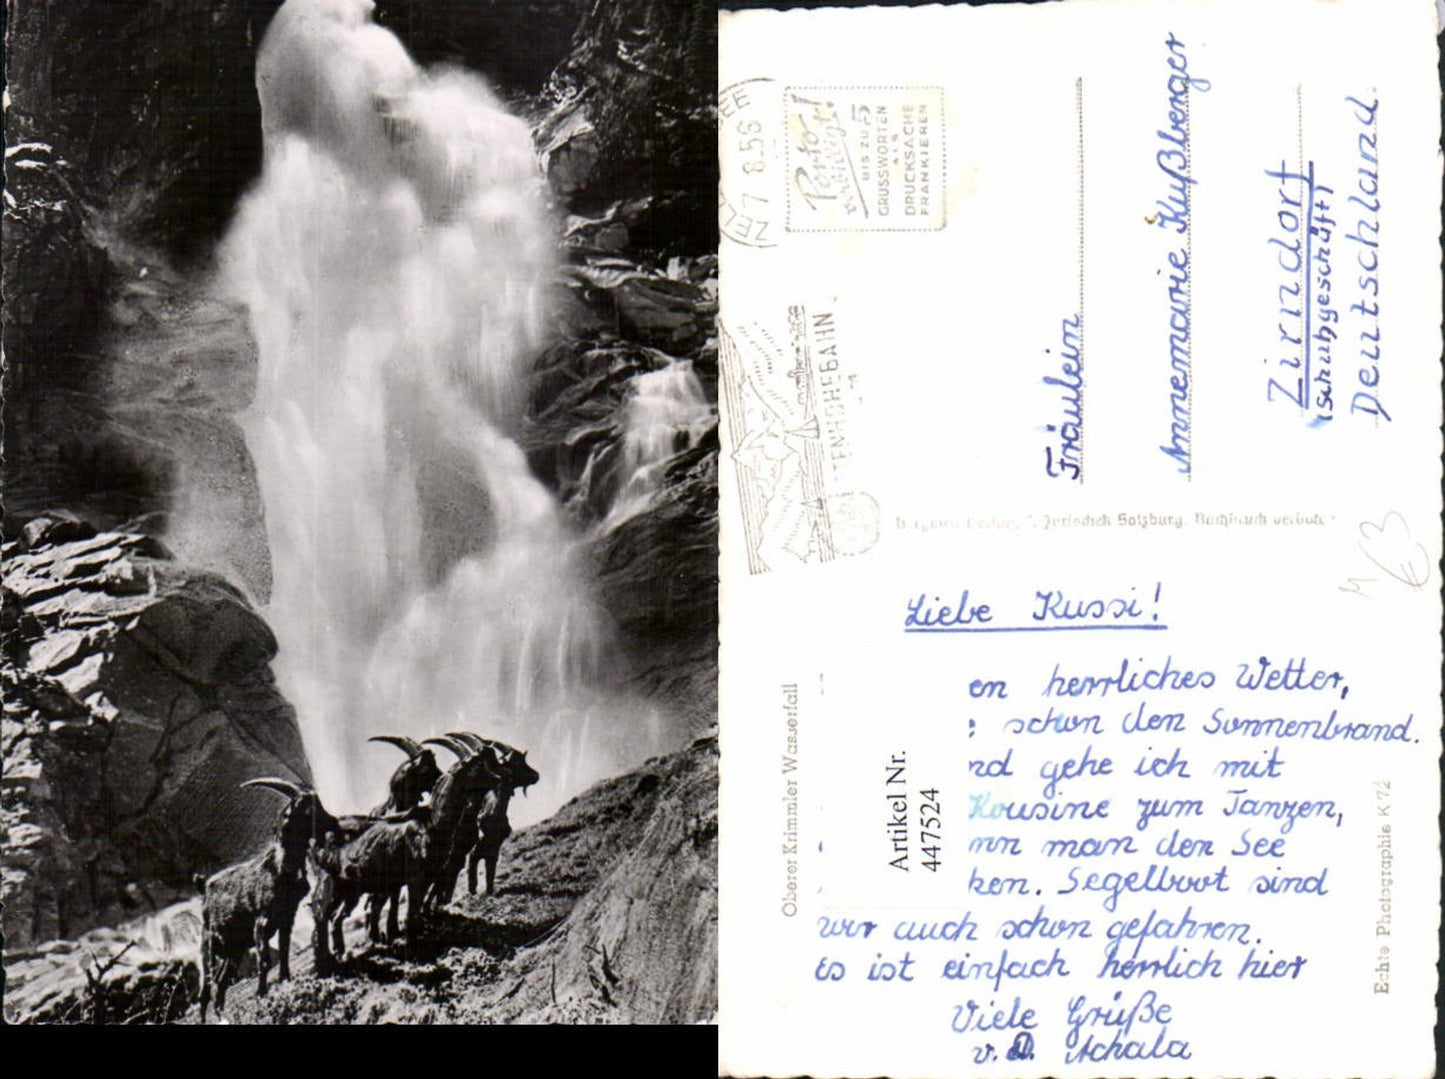 ZELL
SEE
7 8.56
Porto
verbilligt!
BIS ZU 5
GRUSSWORTEN
ALS
DRUCKSACHE
FRANKIEREN
TTENHÖHEBAHN
Fräulein
Annemarie Kußberger
Zirndorf
(Schuhgeschäft)
Deutschland
Jurischek Salzburg. Nachdruck verboten
€3
Liebe Kussi!
en herrliches Wetter,
schon den Sonnenbrand.
nd gehe ich mit
Kousine zum Tanzen,
nn man den See
ken. Segelboot sind
wir auch schon gefahren.
Es ist einfach herrlich hier
Viele Grüße
v. Achala
Oberer Krimmler Wasserfall
Artikel Nr.
447524
Echte Photographie K 72